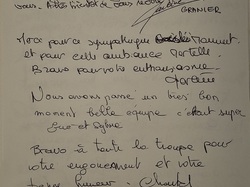 vous.
GRANIER
Merci pour ce sympathique moment
et pour cette ambiance mortelle.
Bravo pour votre enthousiasme
Nous avons passé un très bon
moment belle équipe c'était super
et Sylvie
Bravo à toute la troupe pour
votre engouement et votre
bonne humeur. Chantal